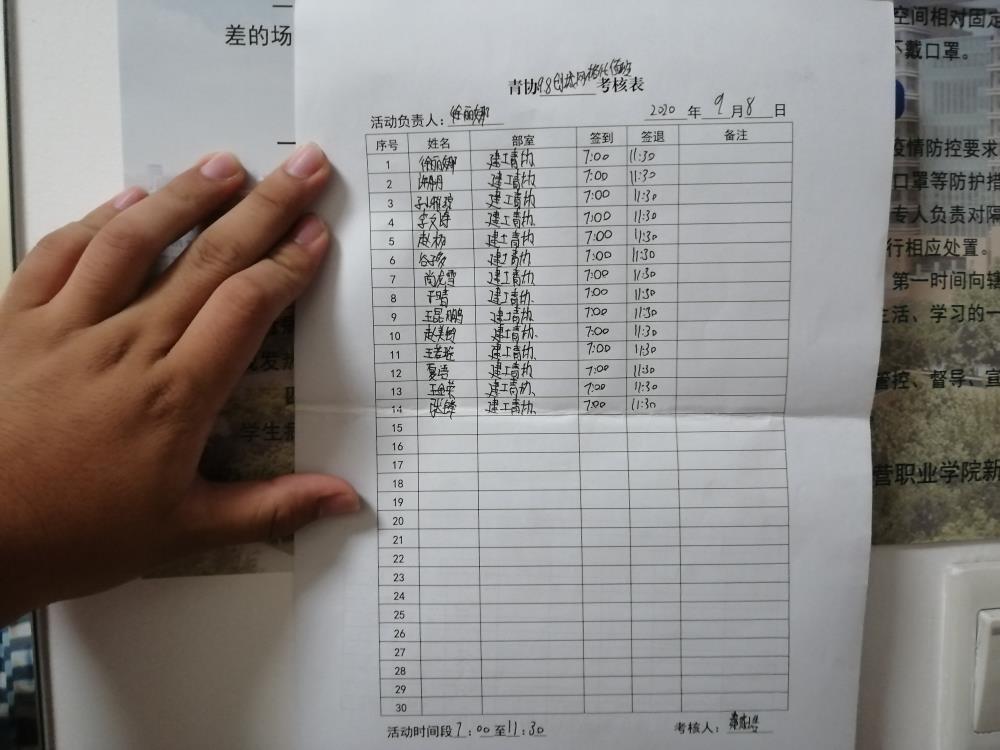 差的场
空间相对固定
不戴口罩。
疫情防控要求
口罩等防护措
专人负责对隔
行相应处置。
第一时间向辖
生活、学习的一
管控、督导、宣
营职业学院新
学生
青协9.8 考核表
活动负责人：徐丽娜 2020 年 9 月 8 日
序号 姓名 部室 签到 签退 备注
1 徐丽娜 建工青协 7:00 11:30
2 建工青协 7:00 11:30
3 建工青协 7:00 11:30
4 李文诗 建工青协 7:00 11:30
5 建工青协 7:00 11:30
6 建工青协 7:00 11:30
7 尚虎雪 建工青协 7:00 11:30
8 于晴 建工青协 7:00 11:30
9 王昆鹏 建工青协 7:00 11:30
10 建工青协 7:00 11:30
11 建工青协 7:00 11:30
12 夏浩 建工青协 7:00 11:30
13 王金荣 建工青协 7:00 11:30
14 建工青协 7:00 11:30
15
16
17
18
19
20
21
22
23
24
25
26
27
28
29
30
活动时间段 7：00 至 11：30 考核人：